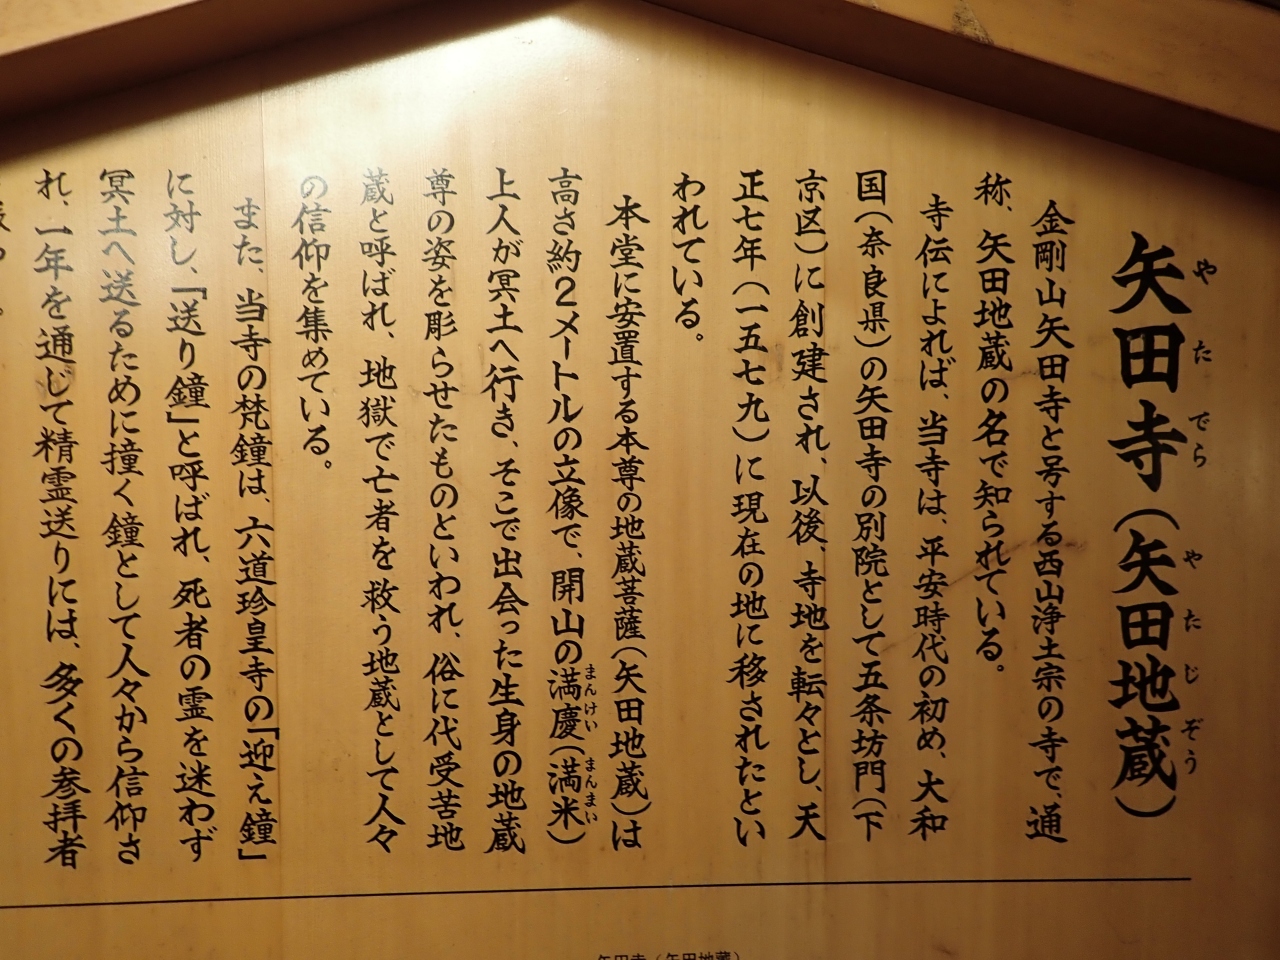 矢田寺（矢田地蔵）
やたでら やたじぞう
金剛山矢田寺と号する西山浄土宗の寺で、通
称、矢田地蔵の名で知られている。
寺伝によれば、当寺は、平安時代の初め、大和
国（奈良県）の矢田寺の別院として五条坊門（下
京区）に創建され、以後、寺地を転々とし、天
正七年（一五七九）に現在の地に移されたとい
われている。
本堂に安置する本尊の地蔵菩薩（矢田地蔵）は
高さ約２メートルの立像で、開山の満慶（満米）
まんけい まんまい
上人が冥土へ行き、そこで出会った生身の地蔵
尊の姿を彫らせたものといわれ、俗に代受苦地
蔵と呼ばれ、地獄で亡者を救う地蔵として人々
の信仰を集めている。
また、当寺の梵鐘は、六道珍皇寺の「迎え鐘」
に対し、「送り鐘」と呼ばれ、死者の霊を迷わず
冥土へ送るために撞く鐘として人々から信仰さ
れ、一年を通じて精霊送りには、多くの参拝者
矢田寺（矢田地蔵）